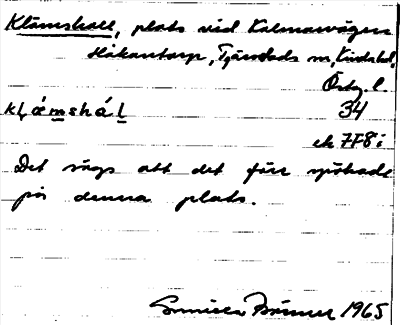 Klämshall, plats vid Kalmarvägen
Håkantorp, Tjärstads sn, Kinda hd,
Östg. l.
34
kḷǽmshá̀ḷ
ek 7F8i
Det sägs att det förr spökade
på denna plats.
Gunilla Brämer 1965